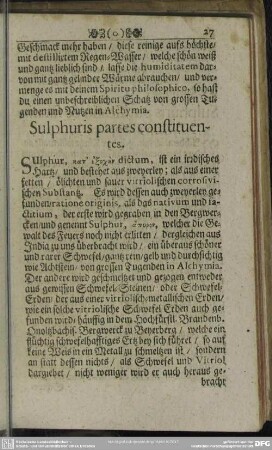 (o) 27
Geschmack mehr haben / diese reinige aufs höchste
mit destillirtem Regen-Wasser / welche schön weiß
und gantz lieblich sind / lasse die humiditatem dar-
von mit gantz gelinder Wärme abrauchen / und ver-
menge es mit deinem Spiritu philosophico, so hast
du einen unbeschreiblichen Schatz von grossen Tu-
genden und Nutzen in Alchymia.
Sulphuris partes constituen-
tes.
Sulphur, κατ' ἐξοχὴν dictum, ist ein irrdisches
Hartz / und bestehet aus zweyerley; als aus einer
fetten / ölichten und saur vitriolischen corrosivi-
schen Substantz. Es wird dessen auch zweyerley ge-
funden ratione originis, als das nativum und fa-
ctitium, der erste wird gegraben in den Bergwer-
cken / und genennt Sulphur, welcher die Ge-
walt des Feuers noch nicht erlitten / dergleichen aus
India zu uns überbracht wird / ein überaus schöner
und rarer Schwefel / gantz rein / gelb und durchsichtig
wie Achtstein von grossen Tugenden in Alchymia.
Der andere wird geschmeltzt und gezogen entweder
aus gewissen Schwefel-Steinen / oder Schwefel-
Erden / der aus einer vitriolisch-metallischen Erden /
wie ein solche vitriolische Schwefel Erden auch ge-
funden wird häuffig in dem Hochfürstl. Brandenb.
Onoltzbachis. Bergwerck zu Beyerberg / welche ein
flüchtig schwefelhafftiges Ertz bey sich führet / so auf
keine Weis in ein Metall zu schmeltzen ist / sondern
an statt dessen nichts / als Schwefel und Vitriol
dargiebet / nicht weniger wird er auch heraus ge-
bracht